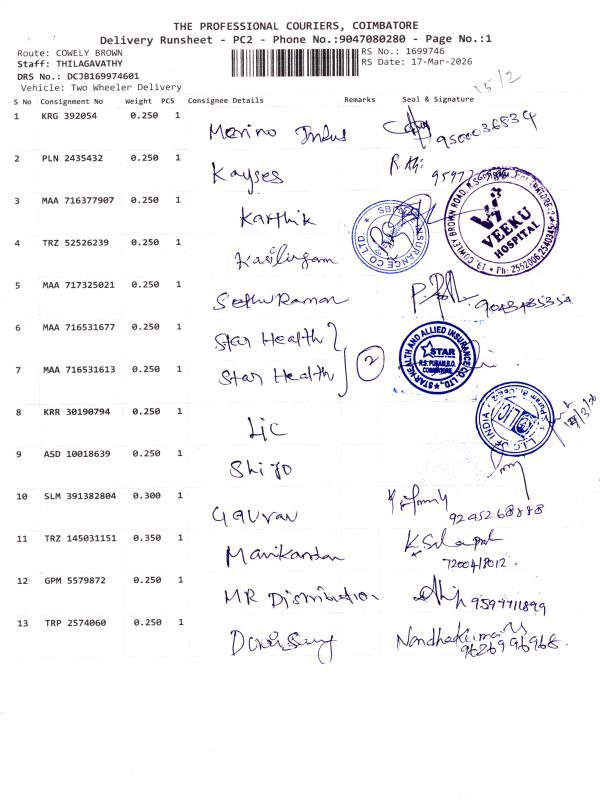 THE PROFESSIONAL COURIERS, COIMBATORE
Delivery Runsheet - PC2 - Phone No.:9047080280 - Page No.:1
Route: COWELY BROWN
RS No.: 1699746
Staff: THILAGAVATHY
RS Date: 17-Mar-2026
DRS No.: DCJB169974601
15/2
Vehicle: Two Wheeler Delivery
S No Consignment No Weight PCS Consignee Details Remarks Seal & Signature
1 KRG 392054 0.250 1 Merino Indus 9500036834
2 PLN 2435432 0.250 1 Kayses
3 MAA 716377907 0.250 1 Karthik
VEEKU HOSPITAL
4 TRZ 52526239 0.250 1 Kasilingam
5 MAA 717325021 0.250 1 Sethu Raman
6 MAA 716531677 0.250 1 Star Health
2
STAR HEALTH AND ALLIED INSURANCE CO. LTD.
STAR
R.S. PURAM B.O.
COIMBATORE
7 MAA 716531613 0.250 1 Star Health
8 KRR 30190794 0.250 1 Lic
L.I.C. OF INDIA
9 ASD 10018639 0.250 1
10 SLM 391382804 0.300 1 Gauvan 9245268888
11 TRZ 145031151 0.350 1 Manikandan
7200418012.
12 GPM 5579872 0.250 1 MR Distribution 9597711899
13 TRP 2574060 0.250 1 Nandhakumar
9626996968.